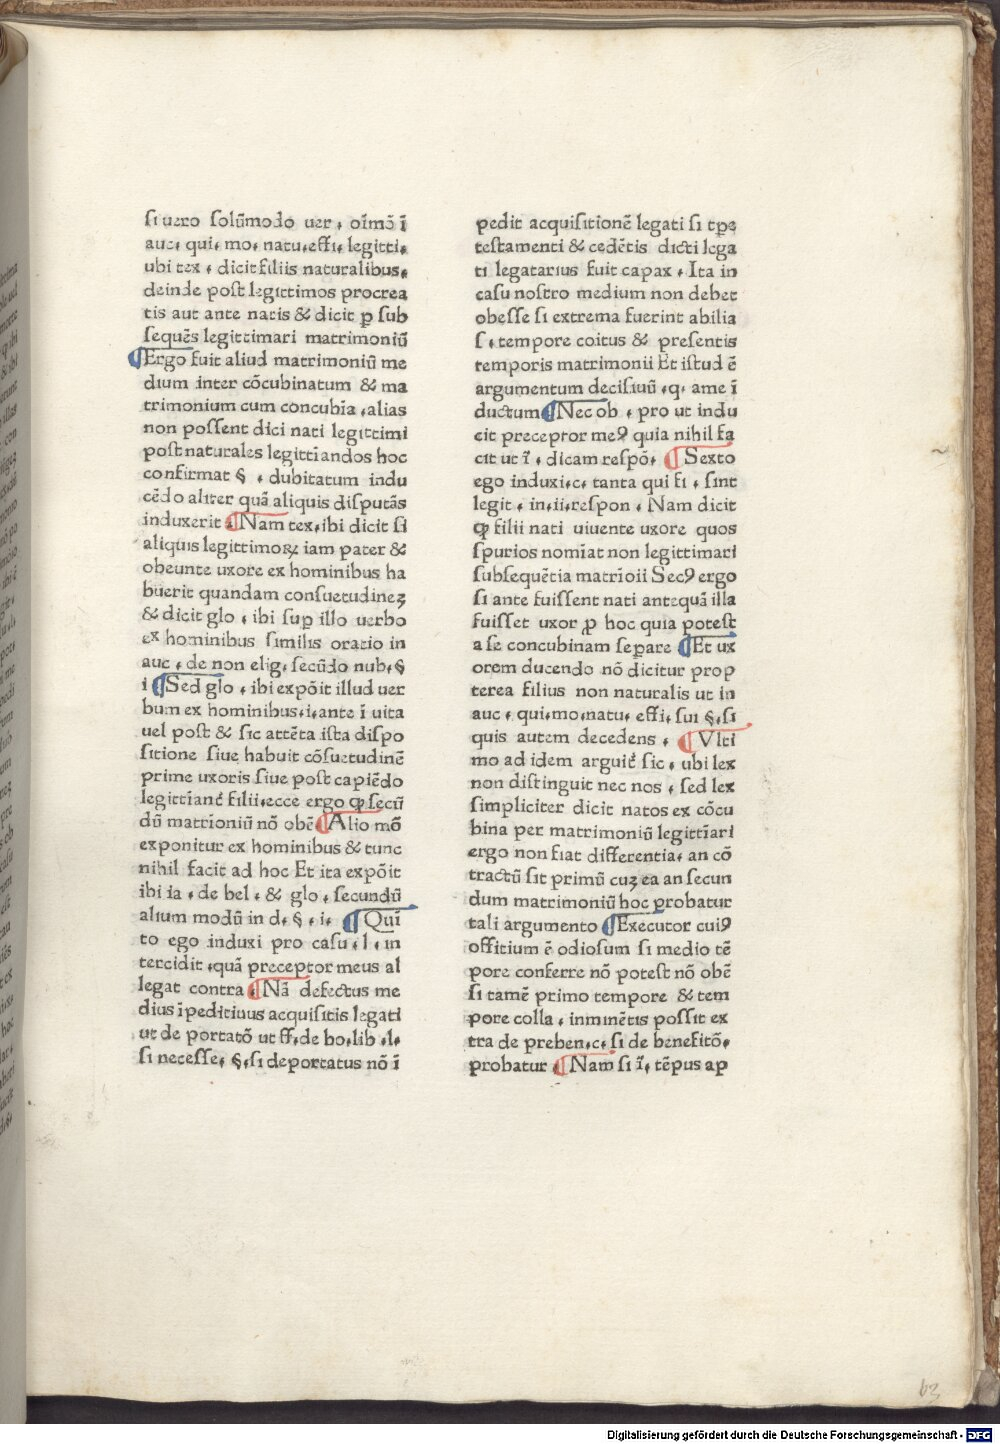 si uero solu̅modo uer . oi̅mo̅ i̅
auc. qui. mo. natu. effi. legitti.
ubi tex . dicit filiis naturalibus.
deinde post legittimos procrea
tis aut ante natis & dicit ꝑ sub
seque̅s legittimari matrimoniu̅
¶Ergo fuit aliud matrimoniu̅ me
dium inter co̅cubinatum & ma
trimonium cum concubi̅a .alias
non possent dici nati legittimi
post naturales legitti̅andos hoc
confirmat § . dubitatum indu
ce̅do aliter qua̅ aliquis disputa̅s
induxerit ¶Nam tex.ibi dicit si
aliquis legittimoꝝ iam pater &
obeunte uxore ex hominibus ha
buerit quandam consuetudineꝫ
& dicit glo . ibi suꝑ illo uerbo
ex hominibus similis oratio in
auc . de non elig. secu̅do nub. §
i ¶Sed glo . ibi expo̅it illud uer
bum ex hominibus.i.ante i̅ uita
uel post & sic atte̅ta ista dispo
sitione siue habuit co̅suetudine̅
prime uxoris siue post capie̅do
legitti̅anc̅ filii.ecce ergo ꝙ secu̅
du̅ matri̅oniu̅ no̅ obe̅ ¶Alio mo̅
exponitur ex hominibus & tunc
nihil facit ad hoc Et ita expo̅it
ibi ia . de bel . & glo . secundu̅
alium modu̅ in d. § . i. ¶Qui̅
to ego induxi pro casu . l . in
tercidit .qua̅ preceptor meus al
legat contra ¶Na̅ defectus me
dius i̅peditiuus acquisitis legati
ut de portato̅ ut ff.de bo.lib .l.
si necesse. §.si deportatus no̅ i̅
pedit acquisitione̅ legati si tꝑe
testamenti & cede̅tis dicti lega
ti legatarius fuit capax . Ita in
casu nostro medium non debet
obesse si extrema fuerint abilia
s . tempore coitus & presentis
temporis matrimonii Et istud e̅
argumentum decisiuu̅ .q. a me i̅
ductum ¶Nec ob . pro ut indu
cit preceptor meꝰ quia nihil fa
cit ut i̅ . dicam respo̅. ¶Sexto
ego induxi.c. tanta qui fi . sint
legit . in.ii.respon . Nam dicit
ꝙ filii nati uiuente uxore quos
spurios nomi̅at non legittimari
subseque̅tia matri̅oii Secꝰ ergo
si ante fuissent nati antequa̅ illa
fuisset uxor ꝓ hoc quia potest
a se concubinam seꝑare ¶Et ux
orem ducendo no̅ dicitur prop
terea filius non naturalis ut in
auc . qui.mo.natu. effi. sui §.si
quis autem decedens . ¶Vlti
mo ad idem arguic̅ sic . ubi lex
non distinguit nec nos . sed lex
simpliciter dicit natos ex co̅cu
bina per matrimoniu̅ legitti̅ari
ergo non fiat differentia. an co̅
tractu̅ sit primu̅ cuꝫ ea an secun
dum matrimoniu̅ hoc probatur
tali argumento ¶Executor cuiꝰ
offitium e̅ odiosum si medio te̅
pore conferre no̅ potest no̅ obe̅
si tame̅ primo tempore & tem
pore colla . inmine̅tis possit ex
tra de preben.c. si de benefito̅.
probatur ¶Nam si i̅. te̅pus ap
63
Digitalisierung gefördert durch die Deutsche Forschungsgemeinschaft - DFG